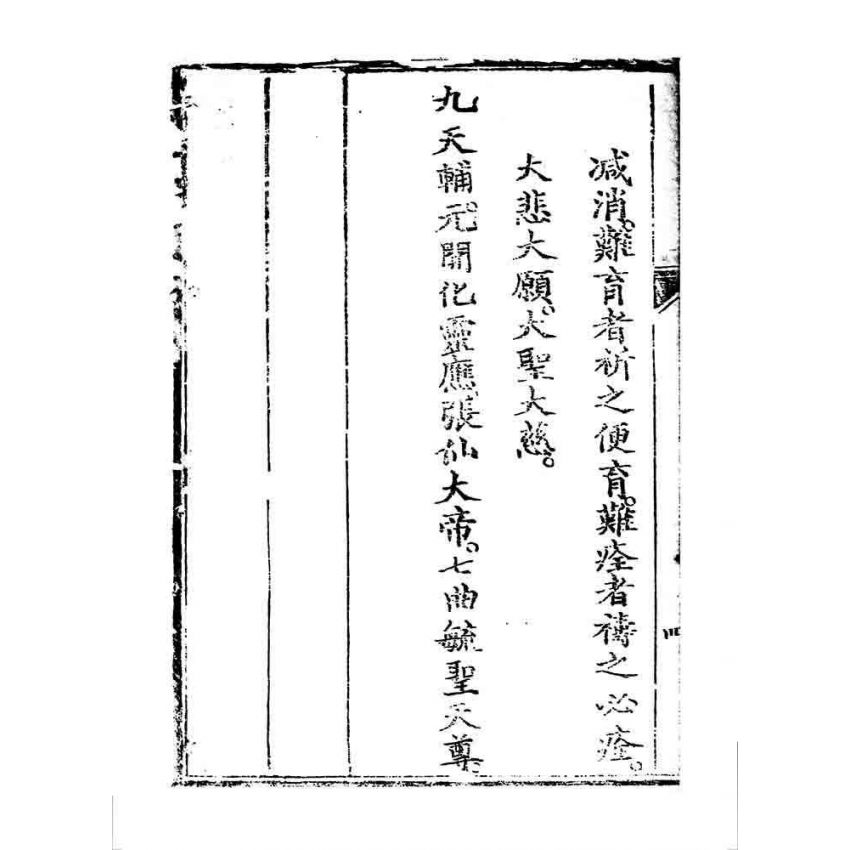 减消。難育者祈之便育。難痊者禱之必痊。
大悲大願。大聖大慈。
九天輔元開化靈應張仙大帝。七曲毓聖天尊。
四